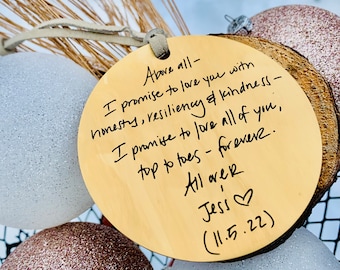 Above all-
I promise to love you with
honesty, resiliency & kindness-
I promise to love all of you,
top to toes - forever.
All over
Jess ♡
(11.5.22)